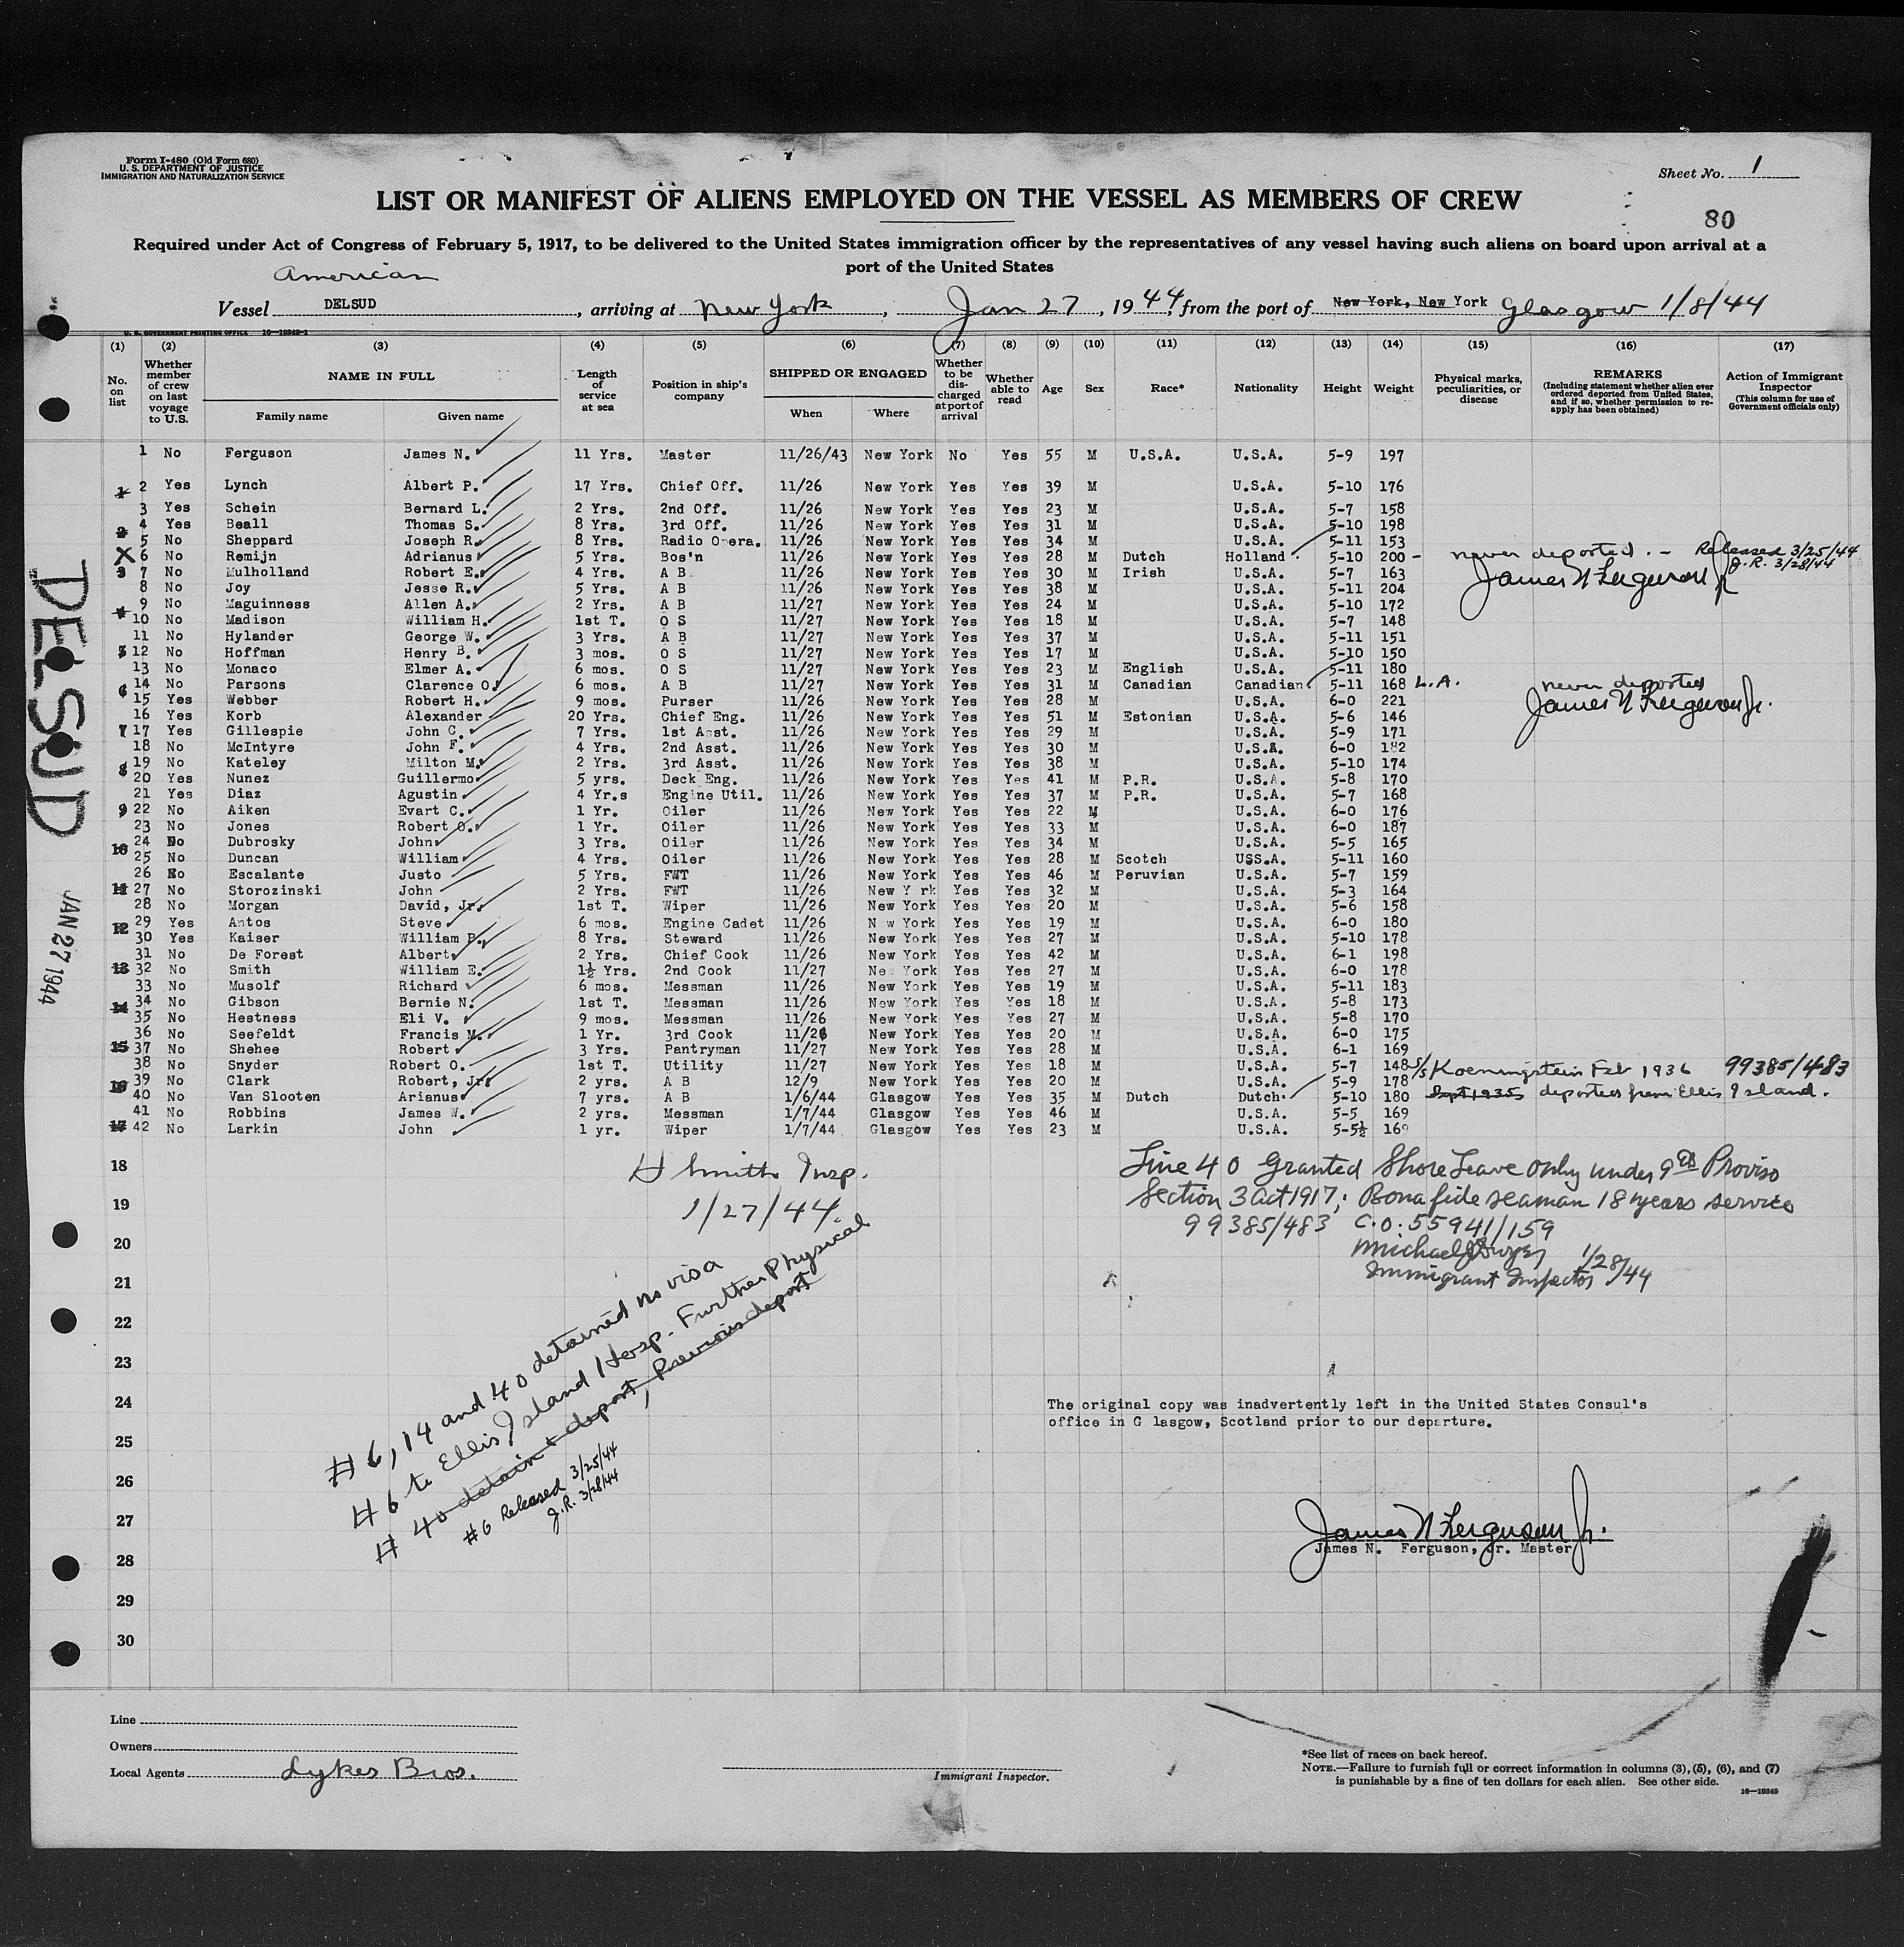 Form I-480 (Old Form 680)
U. S. DEPARTMENT OF JUSTICE
IMMIGRATION AND NATURALIZATION SERVICE
Sheet No. 1
LIST OR MANIFEST OF ALIENS EMPLOYED ON THE VESSEL AS MEMBERS OF CREW
80
Required under Act of Congress of February 5, 1917, to be delivered to the United States immigration officer by the representatives of any vessel having such aliens on board upon arrival at a
port of the United States
American
Vessel DELSUD, arriving at New York, Jan 27, 1944, from the port of New York, New York Glasgow 1/8/44
U. S. GOVERNMENT PRINTING OFFICE 16-19349-1
(1) (2) (3) (4) (5) (6) (7) (8) (9) (10) (11) (12) (13) (14) (15) (16) (17)
No. on list
Whether member of crew on last voyage to U.S.
NAME IN FULL
Family name
Given name
Length of service at sea
Position in ship's company
SHIPPED OR ENGAGED
When
Where
Whether to be discharged at port of arrival
Whether able to read
Age
Sex
Race*
Nationality
Height
Weight
Physical marks, peculiarities, or disease
REMARKS
(Including statement whether alien ever ordered deported from United States, and if so, whether permission to reapply has been obtained)
Action of Immigrant Inspector
(This column for use of Government officials only)
1 No Ferguson James N. 11 Yrs. Master 11/26/43 New York No Yes 55 M U.S.A. U.S.A. 5-9 197
2 Yes Lynch Albert P. 17 Yrs. Chief Off. 11/26 New York Yes Yes 39 M U.S.A. 5-10 176
3 Yes Schein Bernard L. 2 Yrs. 2nd Off. 11/26 New York Yes Yes 23 M U.S.A. 5-7 158
4 Yes Beall Thomas S. 8 Yrs. 3rd Off. 11/26 New York Yes Yes 31 M U.S.A. 5-10 198
5 No Sheppard Joseph R. 8 Yrs. Radio O era. 11/26 New York Yes Yes 34 M U.S.A. 5-11 153
X 6 No Remijn Adrianus 5 Yrs. Bos'n 11/26 New York Yes Yes 28 M Dutch Holland 5-10 200 - never deported. - Released 3/25/44 J.R. 3/28/44
7 No Mulholland Robert E. 4 Yrs. A B 11/26 New York Yes Yes 30 M Irish U.S.A. 5-7 163 James N Ferguson Jr
8 No Joy Jesse R. 5 Yrs. A B 11/26 New York Yes Yes 38 M U.S.A. 5-11 204
9 No Maguinness Allen A. 2 Yrs. A B 11/27 New York Yes Yes 24 M U.S.A. 5-10 172
10 No Madison William H. 1st T. O S 11/27 New York Yes Yes 18 M U.S.A. 5-7 148
11 No Hylander George W. 3 Yrs. A B 11/27 New York Yes Yes 37 M U.S.A. 5-11 151
12 No Hoffman Henry B. 3 mos. O S 11/27 New York Yes Yes 17 M U.S.A. 5-10 150
13 No Monaco Elmer A. 6 mos. O S 11/27 New York Yes Yes 23 M English U.S.A. 5-11 180
14 No Parsons Clarence O. 6 mos. A B 11/27 New York Yes Yes 31 M Canadian Canadian 5-11 168 L.A. never deported
15 Yes Webber Robert H. 9 mos. Purser 11/26 New York Yes Yes 28 M U.S.A. 6-0 221 James N Ferguson Jr.
16 Yes Korb Alexander 20 Yrs. Chief Eng. 11/26 New York Yes Yes 51 M Estonian U.S.A. 5-6 146
17 Yes Gillespie John C. 7 Yrs. 1st Asst. 11/26 New York Yes Yes 29 M U.S.A. 5-9 171
18 No McIntyre John F. 4 Yrs. 2nd Asst. 11/26 New York Yes Yes 30 M U.S.A. 6-0 182
19 No Kateley Milton M. 2 Yrs. 3rd Asst. 11/26 New York Yes Yes 38 M U.S.A. 5-10 174
20 Yes Nunez Guillermo 5 yrs. Deck Eng. 11/26 New York Yes Yes 41 M P.R. U.S.A. 5-8 170
21 Yes Diaz Agustin 4 Yr.s Engine Util. 11/26 New York Yes Yes 37 M P.R. U.S.A. 5-7 168
22 No Aiken Evart C. 1 Yr. Oiler 11/26 New York Yes Yes 22 M U.S.A. 6-0 176
23 No Jones Robert O. 1 Yr. Oiler 11/26 New York Yes Yes 33 M U.S.A. 6-0 187
24 No Dubrosky John 3 Yrs. Oiler 11/26 New York Yes Yes 34 M U.S.A. 5-5 165
25 No Duncan William 4 Yrs. Oiler 11/26 New York Yes Yes 28 M Scotch USS.A. 5-11 160
26 No Escalante Justo 5 Yrs. FWT 11/26 New York Yes Yes 46 M Peruvian U.S.A. 5-7 159
27 No Storozinski John 2 Yrs. FWT 11/26 New Y rk Yes Yes 32 M U.S.A. 5-3 164
28 No Morgan David, Jr. 1st T. Wiper 11/26 New York Yes Yes 20 M U.S.A. 5-6 158
29 Yes Antos Steve 6 mos. Engine Cadet 11/26 N w York Yes Yes 19 M U.S.A. 6-0 180
30 Yes Kaiser William P. 8 Yrs. Steward 11/26 New York Yes Yes 27 M U.S.A. 5-10 178
31 No De Forest Albert 2 Yrs. Chief Cook 11/26 New York Yes Yes 42 M U.S.A. 6-1 198
32 No Smith William E. 1½ Yrs. 2nd Cook 11/27 New York Yes Yes 27 M U.S.A. 6-0 178
33 No Musolf Richard 6 mos. Messman 11/26 New York Yes Yes 19 M U.S.A. 5-11 183
34 No Gibson Bernie N. 1st T. Messman 11/26 New York Yes Yes 18 M U.S.A. 5-8 173
35 No Hestness Eli V. 9 mos. Messman 11/26 New York Yes Yes 27 M U.S.A. 5-8 170
36 No Seefeldt Francis M. 1 Yr. 3rd Cook 11/26 New York Yes Yes 20 M U.S.A. 6-0 175
37 No Shehee Robert 3 Yrs. Pantryman 11/27 New York Yes Yes 28 M U.S.A. 6-1 169
38 No Snyder Robert O. 1st T. Utility 11/27 New York Yes Yes 18 M U.S.A. 5-7 148 S/S Koenningstein Feb 1936 99385/483
39 No Clark Robert, Jr. 2 yrs. A B 12/9 New York Yes Yes 20 M U.S.A. 5-9 178
40 No Van Slooten Arianus 7 yrs. A B 1/6/44 Glasgow Yes Yes 35 M Dutch Dutch 5-10 180 Sept 1935 deported from Ellis Island.
41 No Robbins James W. 2 yrs. Messman 1/7/44 Glasgow Yes Yes 46 M U.S.A. 5-5 169
42 No Larkin John 1 yr. Wiper 1/7/44 Glasgow Yes Yes 23 M U.S.A. 5-5½ 169
DELSUD JAN 27 1944
18
19
20
21
22
23
24
25
26
27
28
29
30
H Smith Insp.
1/27/44
Line 40 Granted Shore Leave only under 9th Proviso
Section 3 Act 1917; Bona fide seaman 18 years service
99385/483 C.O. 55941/159
Michael J Dwyer 1/28/44
Immigrant Inspector
#6, 14 and 40 detained no visa
#6 to Ellis Island Hosp. Further Physical
#40 detain + deport, Previous deport
#6 Released 3/25/44
J.R. 3/28/44
The original copy was inadvertently left in the United States Consul's
office in G lasgow, Scotland prior to our departure.
James N Ferguson Jr.
James N. Ferguson, Jr. Master
Line
Owners
Local Agents Lykes Bros.
Immigrant Inspector.
*See list of races on back hereof.
NOTE.—Failure to furnish full or correct information in columns (3), (5), (6), and (7)
is punishable by a fine of ten dollars for each alien. See other side.
16—19349